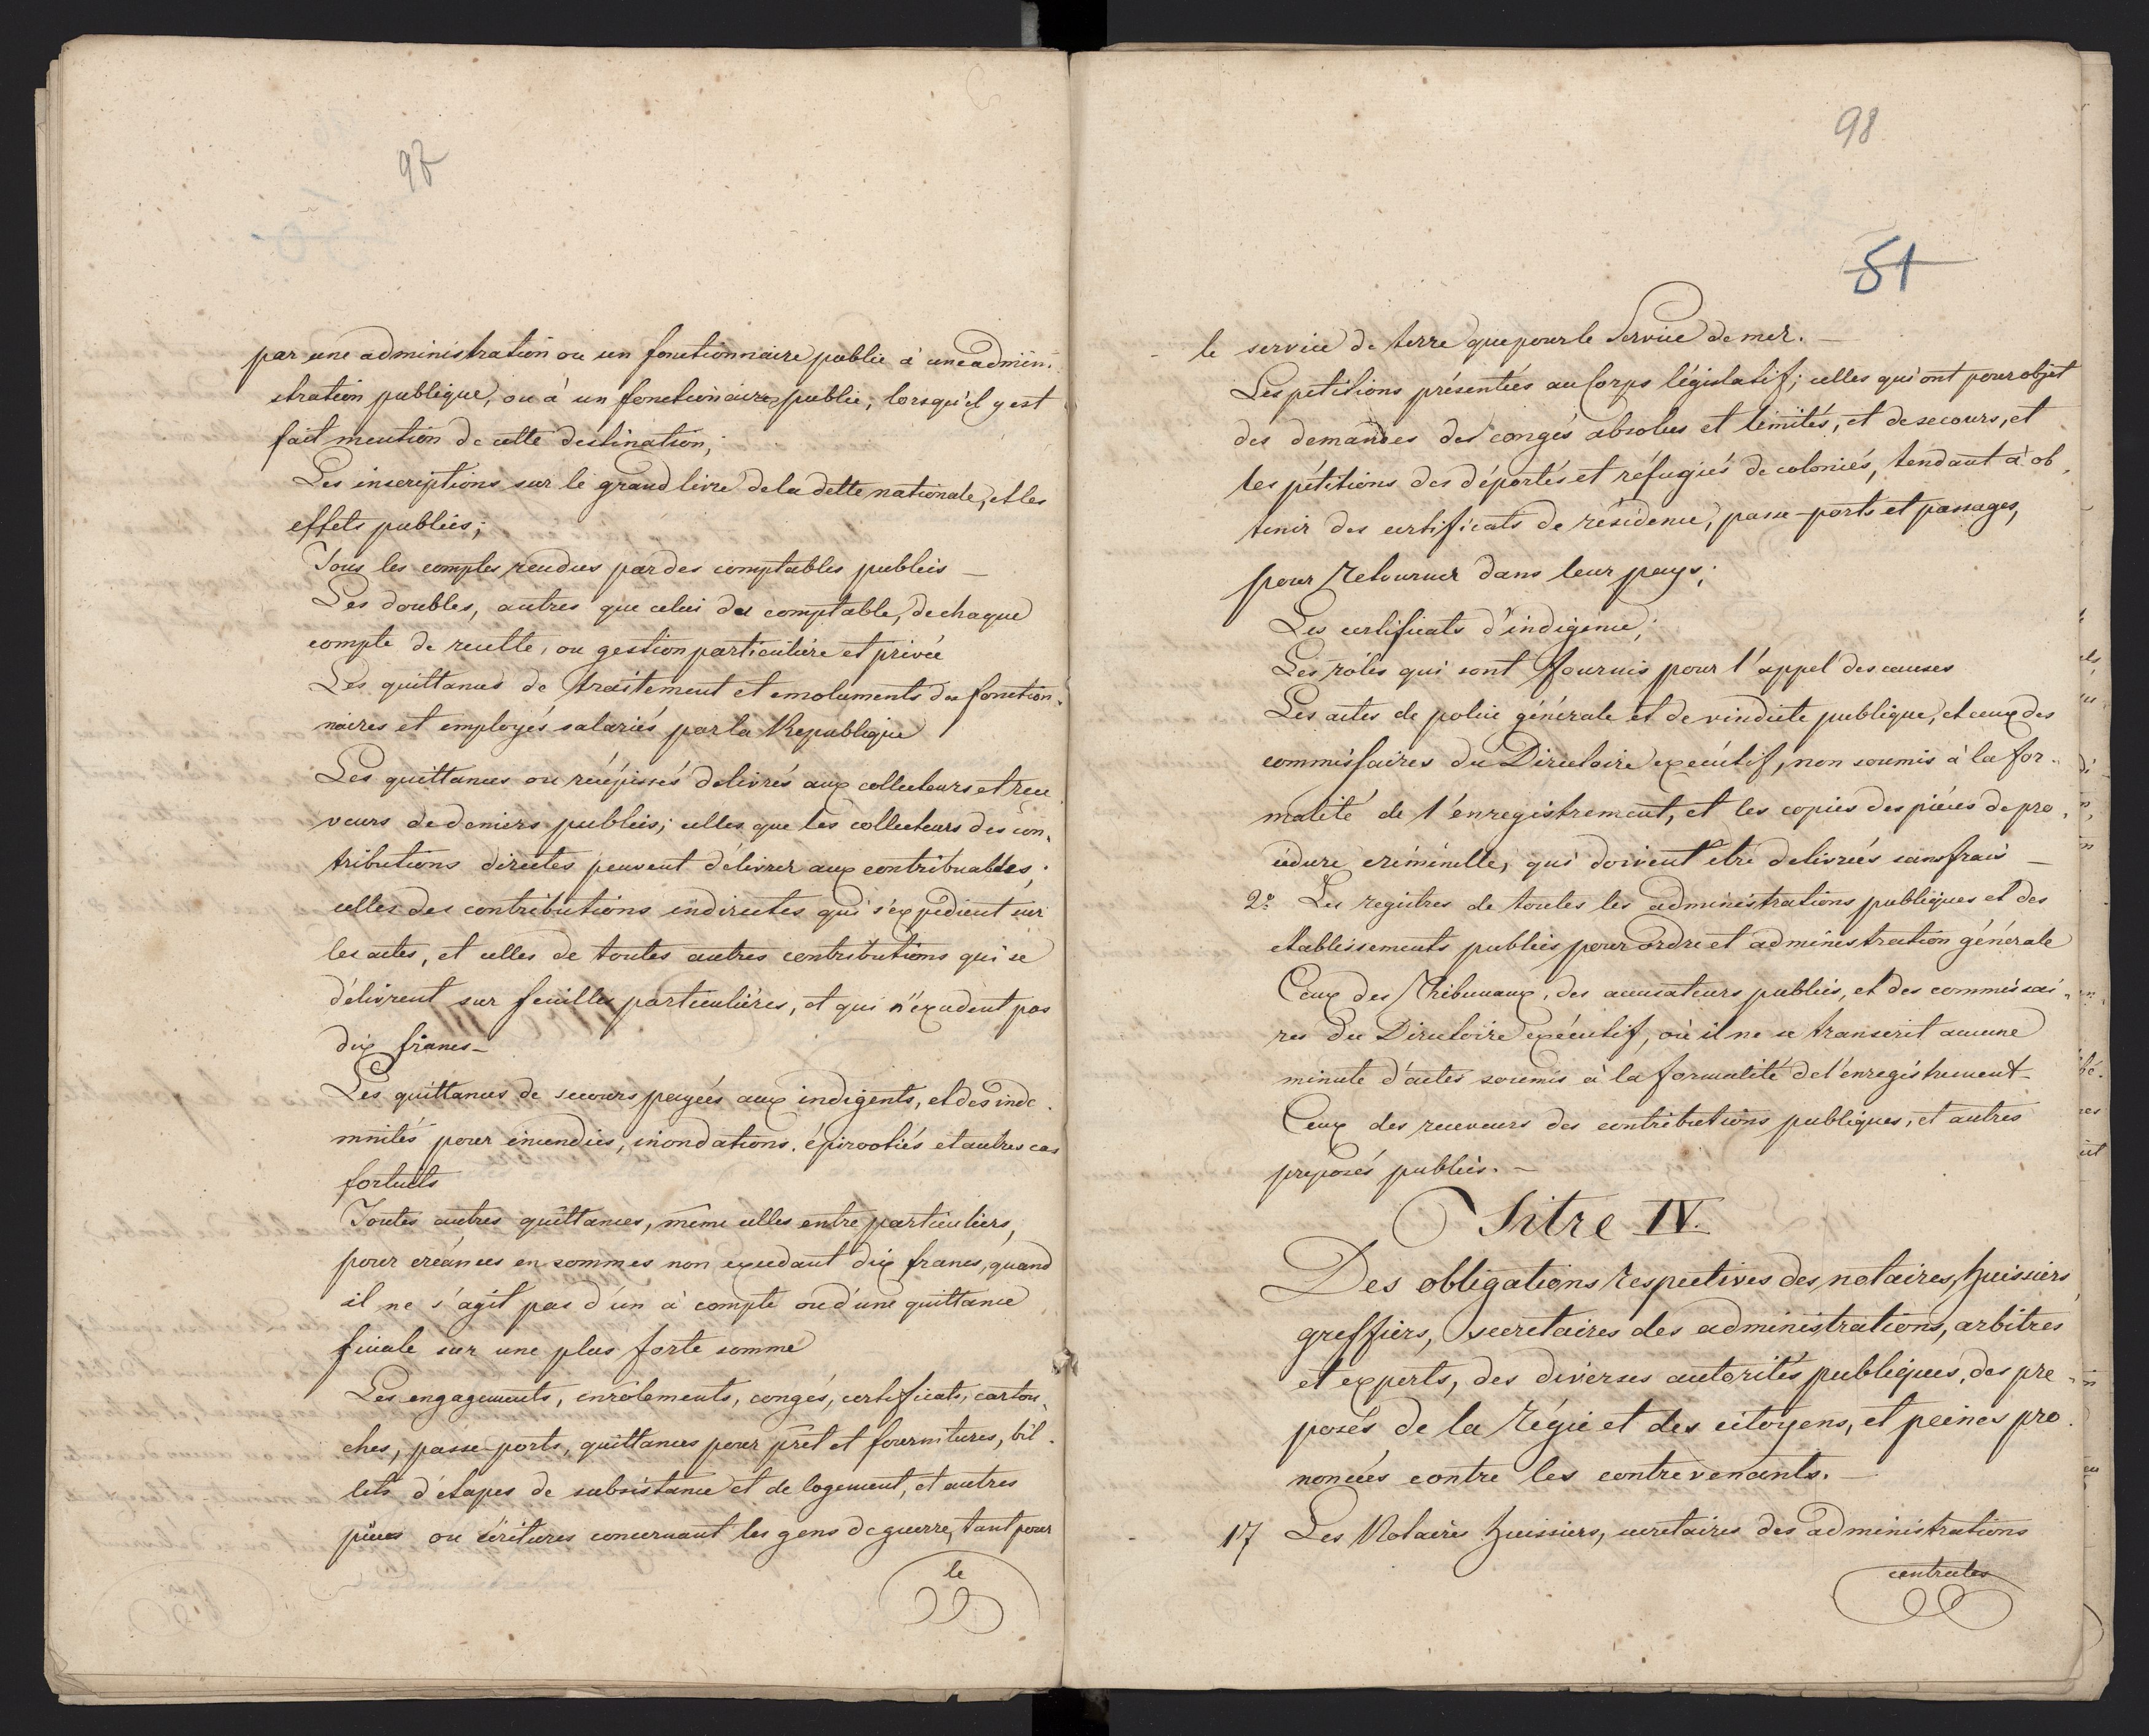 97
par une administration ou un fonctionnaire public à une admini-
stration publique, ou à un fonctionaire public, lorsqu'il y est
fait mention de cette destination;
Les inscriptions sur le grand livre de la dette nationale, et les
effets publics;
Tous les comptes rendus par des comptables publics —
Les doubles, autres que celui du comptable, de chaque
compte de recette, ou gestion particulière et privée
Les quittances de traitement et emoluments du fonction-
naires et employés salariés par la Republique
Les quittances ou récépissés delivrés aux collecteurs et rece
veurs de deniers publics; celles que les collecteurs des con-
tributions directes peuvent délivrer aux contribuables;
celles des contributions indirectes qui s'expédient sur
les actes, et celles de toutes autres contributions qui se
délivrent sur feuilles particulières, et qui n'excedent pas
dix francs —
Les quittances de secours payées aux indigents, et des inde-
mnités pour incendies, inondations, épizooties et autres cas
fortuits
Toutes autres quittances, même celles entre particuliers,
pour créances en sommes non excedant dix francs, quand
il ne s'agit pas d'un à compte ou d'une quittance
finale sur une plus forte somme
Les engagements, enrôlements, congés, certificats, cartou-
ches, passe-ports, quittances pour prêt et fournitures, bil-
lets d'étapes de subsistance et de logement, et autres
pièces ou écritures concernant les gens de guerre, tant pour
le
98
51
le service de terre que pour le Service de mer. —
Les petitions présentées au Corps législatif; celles qui ont pour objet
des demandes des congés absolus et limités, et de secours, et
les pétitions des déportés et réfugiés de colonies, tendant à ob-
tenir des certificats de résidence, passe-ports et passages,
pour retourner dans leur pays;
Les certificats d'indigence;
Les rôles qui sont fournis pour l'appel des causes
Les actes de police générale et de vindicte publique, et ceux des
commissaires du Directoire exécutif, non soumis à la for-
malité de l'enregistrement, et les copies des pièces de pro-
cédure criminelle, qui doivent être delivrées sans frais —
2.º Les registres de toutes les administrations publiques et des
etablissements publics pour ordre et administration générale
Ceux des Tribunaux, des accusateurs publics, et des commissai-
res du Directoire exécutif, où il ne se transcrit aucune
minute d'actes soumis à la formalité de l'enregistrement —
Ceux des receveurs des contributions publiques, et autres
preposés publics. —
Titre IV.
Des obligations respectives des notaires, huissiers,
greffiers, secretaires des administrations, arbitres
et experts, des diverses autorités publiques, des pre-
posés de la régie et des citoyens, et peines pro-
noncées contre les contrevenants. —
17 Les Notaires huissiers, secretaires des administrations
centrales